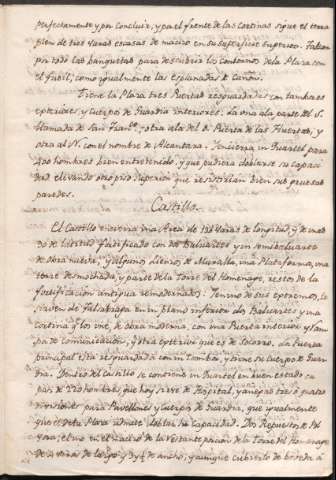 perfectamente y por concluir, y por el frente de las cortinas sigue el terra
plen de tres varas escasas de macizo en su superficie superior. Faltan
por todo las banquetas para descubrir los contornos de la Plaza con
el fusil; como igualmente las esplanadas de cañon.
Tiene la Plaza tres Puertas resguardadas con tambores
exteriores, y cuerpos de Guardia interiores. La una a la parte del S.
llamada de San Franco. otra a la del O. Puerta de las Huertas, y
otra al N. con el nombre de Alcantara. Encierra un Quartel para
400 hombres bien entretenido, y que pudiera doblarse su capaci
dad elevando otro piso superior que resistirian bien sus puestas
paredes.
Castillo.
El Castillo encierra una Area de 128 varas de longitud, y de
de latitud fortificado con dos Baluartes y un semibaluarte
de obra nueve, y algunos lienzos de Muralla, una Plataforma, una
torre desmochada, y parte de la Torre del Homenage, restos de la
fortificacion antigua remodernados. En uno de sus extremos, le
sirven de Falsabraga en un plano inferior dos Baluartes y una
cortina q los une, de obra moderna, con una Puerta interior y Ram
pa de comunicacion, y otra exterior que es de Socorro. La Puerta
principal esta resguardada con un Tambor, y tiene su cuerpo de Guar
dia. Dentro del Castillo se contiene un Quartel en buen estado ca
paz de 220 hombres, que hoy sirve de Hospital, y a mas tres quatro
para Pavellones y Cuerpos de Guardia, que igualmente
de esta Plaza admite doblar su capacidad. Dos Repuestos de Pol
vora; el uno en el macizo de la restante porcion de la Torre del Homenage
de varas de largo y 3 y ½ de ancho, y aunque cubierto de boveda á